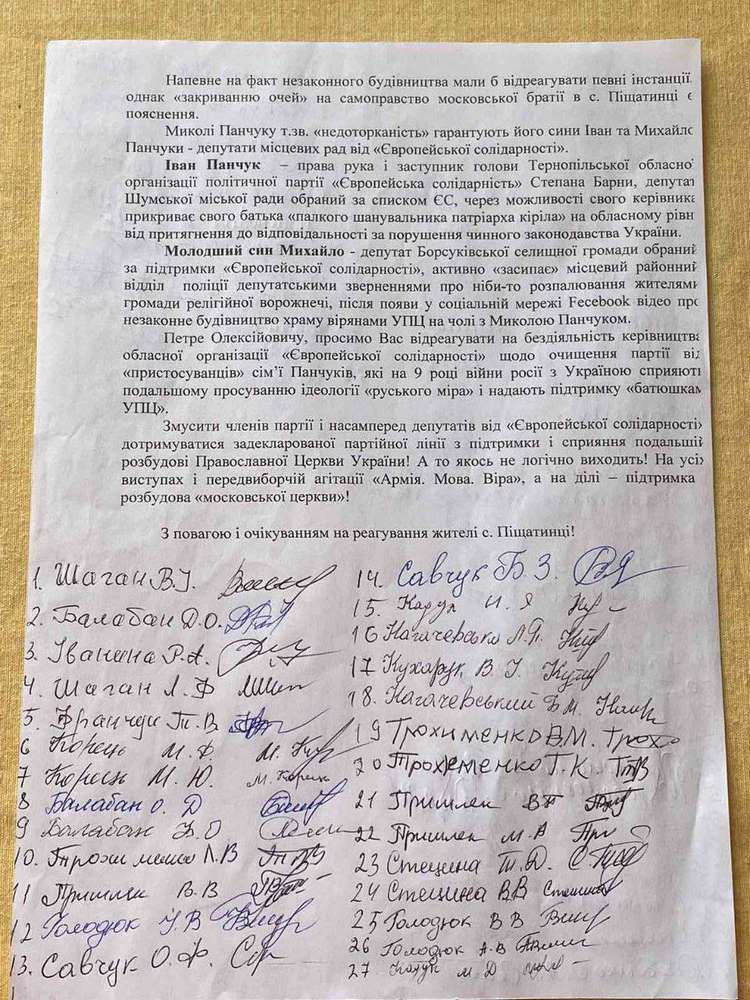 Напевне на факт незаконного будівництва мали б відреагувати певні інстанції,
однак «закриванню очей» на самоправство московської братії в с. Піщатинці є
пояснення.
Миколі Панчуку т.зв. «недоторканість» гарантують його сини Іван та Михайло
Панчуки - депутати місцевих рад від «Європейської солідарності».
Іван Панчук – права рука і заступник голови Тернопільської обласної
організації політичної партії «Європейська солідарність» Степана Барни, депутат
Шумської міської ради обраний за списком ЄС, через можливості свого керівника
прикриває свого батька «палкого шанувальника патріарха кіріла» на обласному рівні
від притягнення до відповідальності за порушення чинного законодавства України.
Молодший син Михайло - депутат Борсуківської селищної громади обраний
за підтримки «Європейської солідарності», активно «засипає» місцевий районний
відділ поліції депутатськими зверненнями про ніби-то розпалювання жителями
громади релігійної ворожнечі, після появи у соціальній мережі Fecebook відео про
незаконне будівництво храму вірянами УПЦ на чолі з Миколою Панчуком.
Петре Олексійовичу, просимо Вас відреагувати на бездіяльність керівництва
обласної організації «Європейської солідарності» щодо очищення партії від
«пристосуванців» сім’ї Панчуків, які на 9 році війни росії з Україною сприяють
подальшому просуванню ідеології «руського міра» і надають підтримку «батюшкам
УПЦ».
Змусити членів партії і насамперед депутатів від «Європейської солідарності»
дотримуватися задекларованої партійної лінії з підтримки і сприяння подальшій
розбудові Православної Церкви України! А то якось не логічно виходить! На усіх
виступах і передвиборчій агітації «Армія. Мова. Віра», а на ділі – підтримка
розбудова «московської церкви»!
З повагою і очікуванням на реагування жителі с. Піщатинці!
1. Шаган В.І.
2. Балабан Д.О.
3. Іванина Р.А.
4. Шаган Л.Ф
5. Франчук Т.В
6 Корець М. Ф
7 Корець М. Ю.
8 Балабан О. Д
9 Балабан О
10. Трохименко Л.В
11 Пришляк В.В
12 Голодюк У.В
13. Савчук О.Ф.
14. Савчук Б.З.
15. Я
16 Нагачевська Л.П.
17 Кухарук В І
18. Нагачевський Б.М.
19 Трохименко В.М.
20 Трохеменко Г.К.
21 Пришляк В
22 Пришляк М.А
23 Стецина Т.Д.
24 Стецина В В
25 Голодюк В В
26 Голодюк А.В
27 М Д